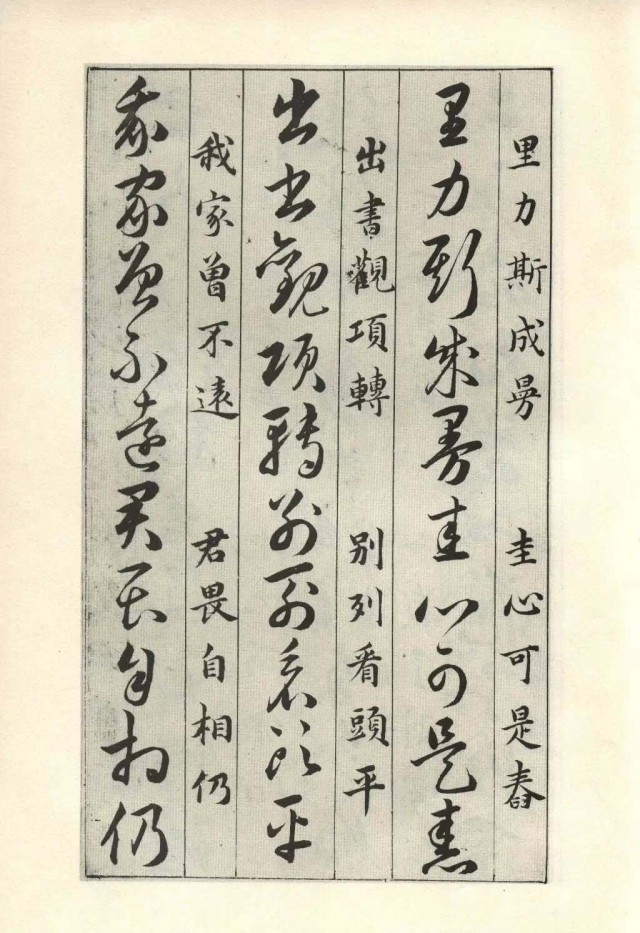 里力斯成曼　圭心可是舂
里力斯成曼圭心可是舂
出書觀項轉　別列看頭平
出書觀項轉別列看頭平
我家曾不遠　君畏自相仍
我家曾不遠君畏自相仍